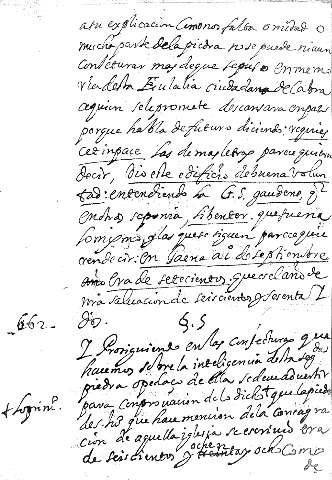 a su explicacion como nos falta o mitad o
mucha parte de la piedra no se puede ni aun
conjeturar mas de que se puso en memo
ria desta Eulalia ciudadana de Cabra
a quien se le promete descansara en paz
porque habla de futuro diciendo: requies
cet in pace. Las demas letras parece quieren
decir, dio este edificio de buena volun
tad: entendiendo la G.S. gaudens, q̃
en otras se ponia, libenter. que suena
lo mismo, y las que se siguen parece quie
ren decir: en Jaena a i de septiembre
era de setecientos, que es el año de
nra salvacion de seiscientos y sesenta y
662. dos.
§.5
Y Prosiguiendo en las conjecturas que
hacemos sobre la inteligencia desta seg.da
piedra o pedaço de ella se debe advertir
para comprovacion de lo dicho q̃ la piedra
des. que hace mencion de la consagra
cion de aquella iglesia se escrivio era
de seiscientos y ochenta y ocho como
de